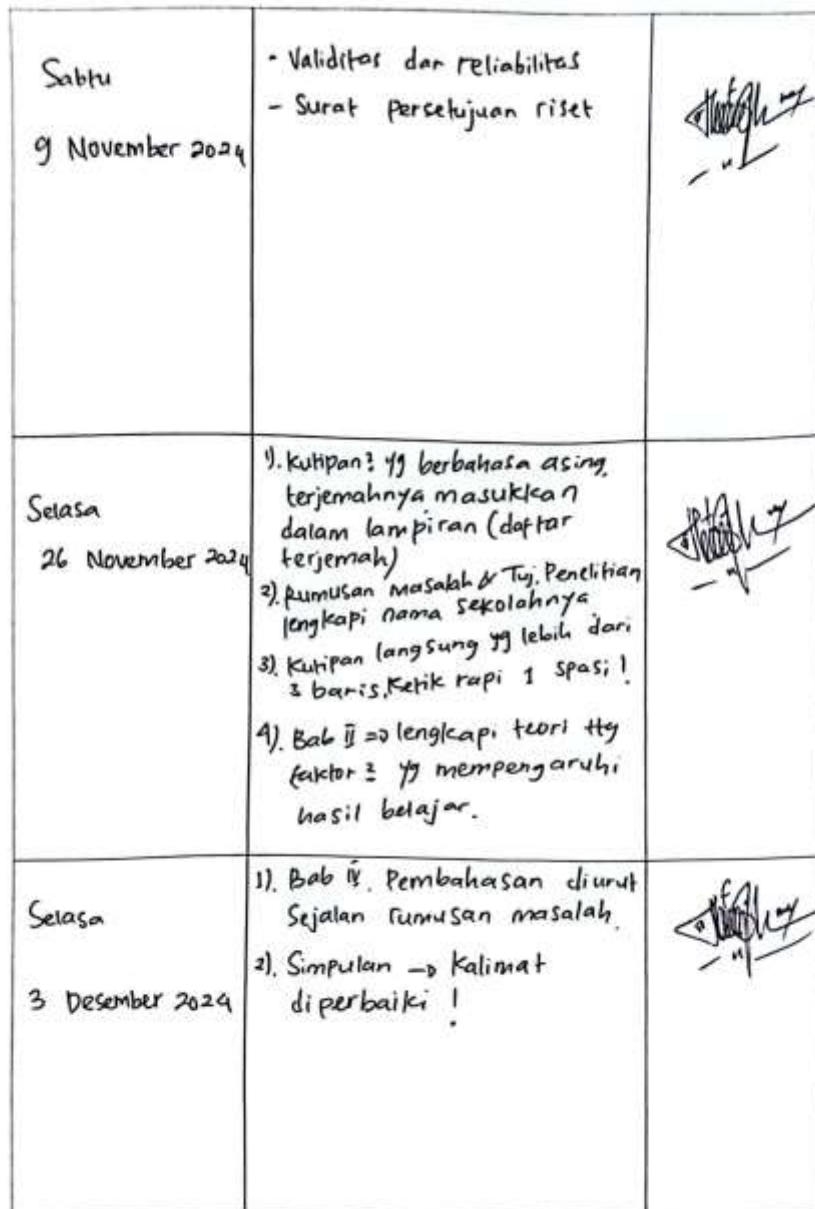 Sabtu
9 November 2024
- Validitas dan reliabilitas
- Surat persetujuan riset
Selasa
26 November 2024
1). Kutipan² yg berbahasa asing,
terjemahnya masukkan
dalam lampiran (daftar
terjemah)
2). Rumusan Masalah & Tuj. Penelitian
lengkapi nama sekolahnya
3). Kutipan langsung yg lebih dari
3 baris, Ketik rapi 1 spasi !
4). Bab II => lengkapi teori ttg
faktor² yg mempengaruhi
hasil belajar.
Selasa
3 Desember 2024
1). Bab IV. Pembahasan diurut
Sejalan rumusan masalah.
2). Simpulan -> Kalimat
diperbaiki !